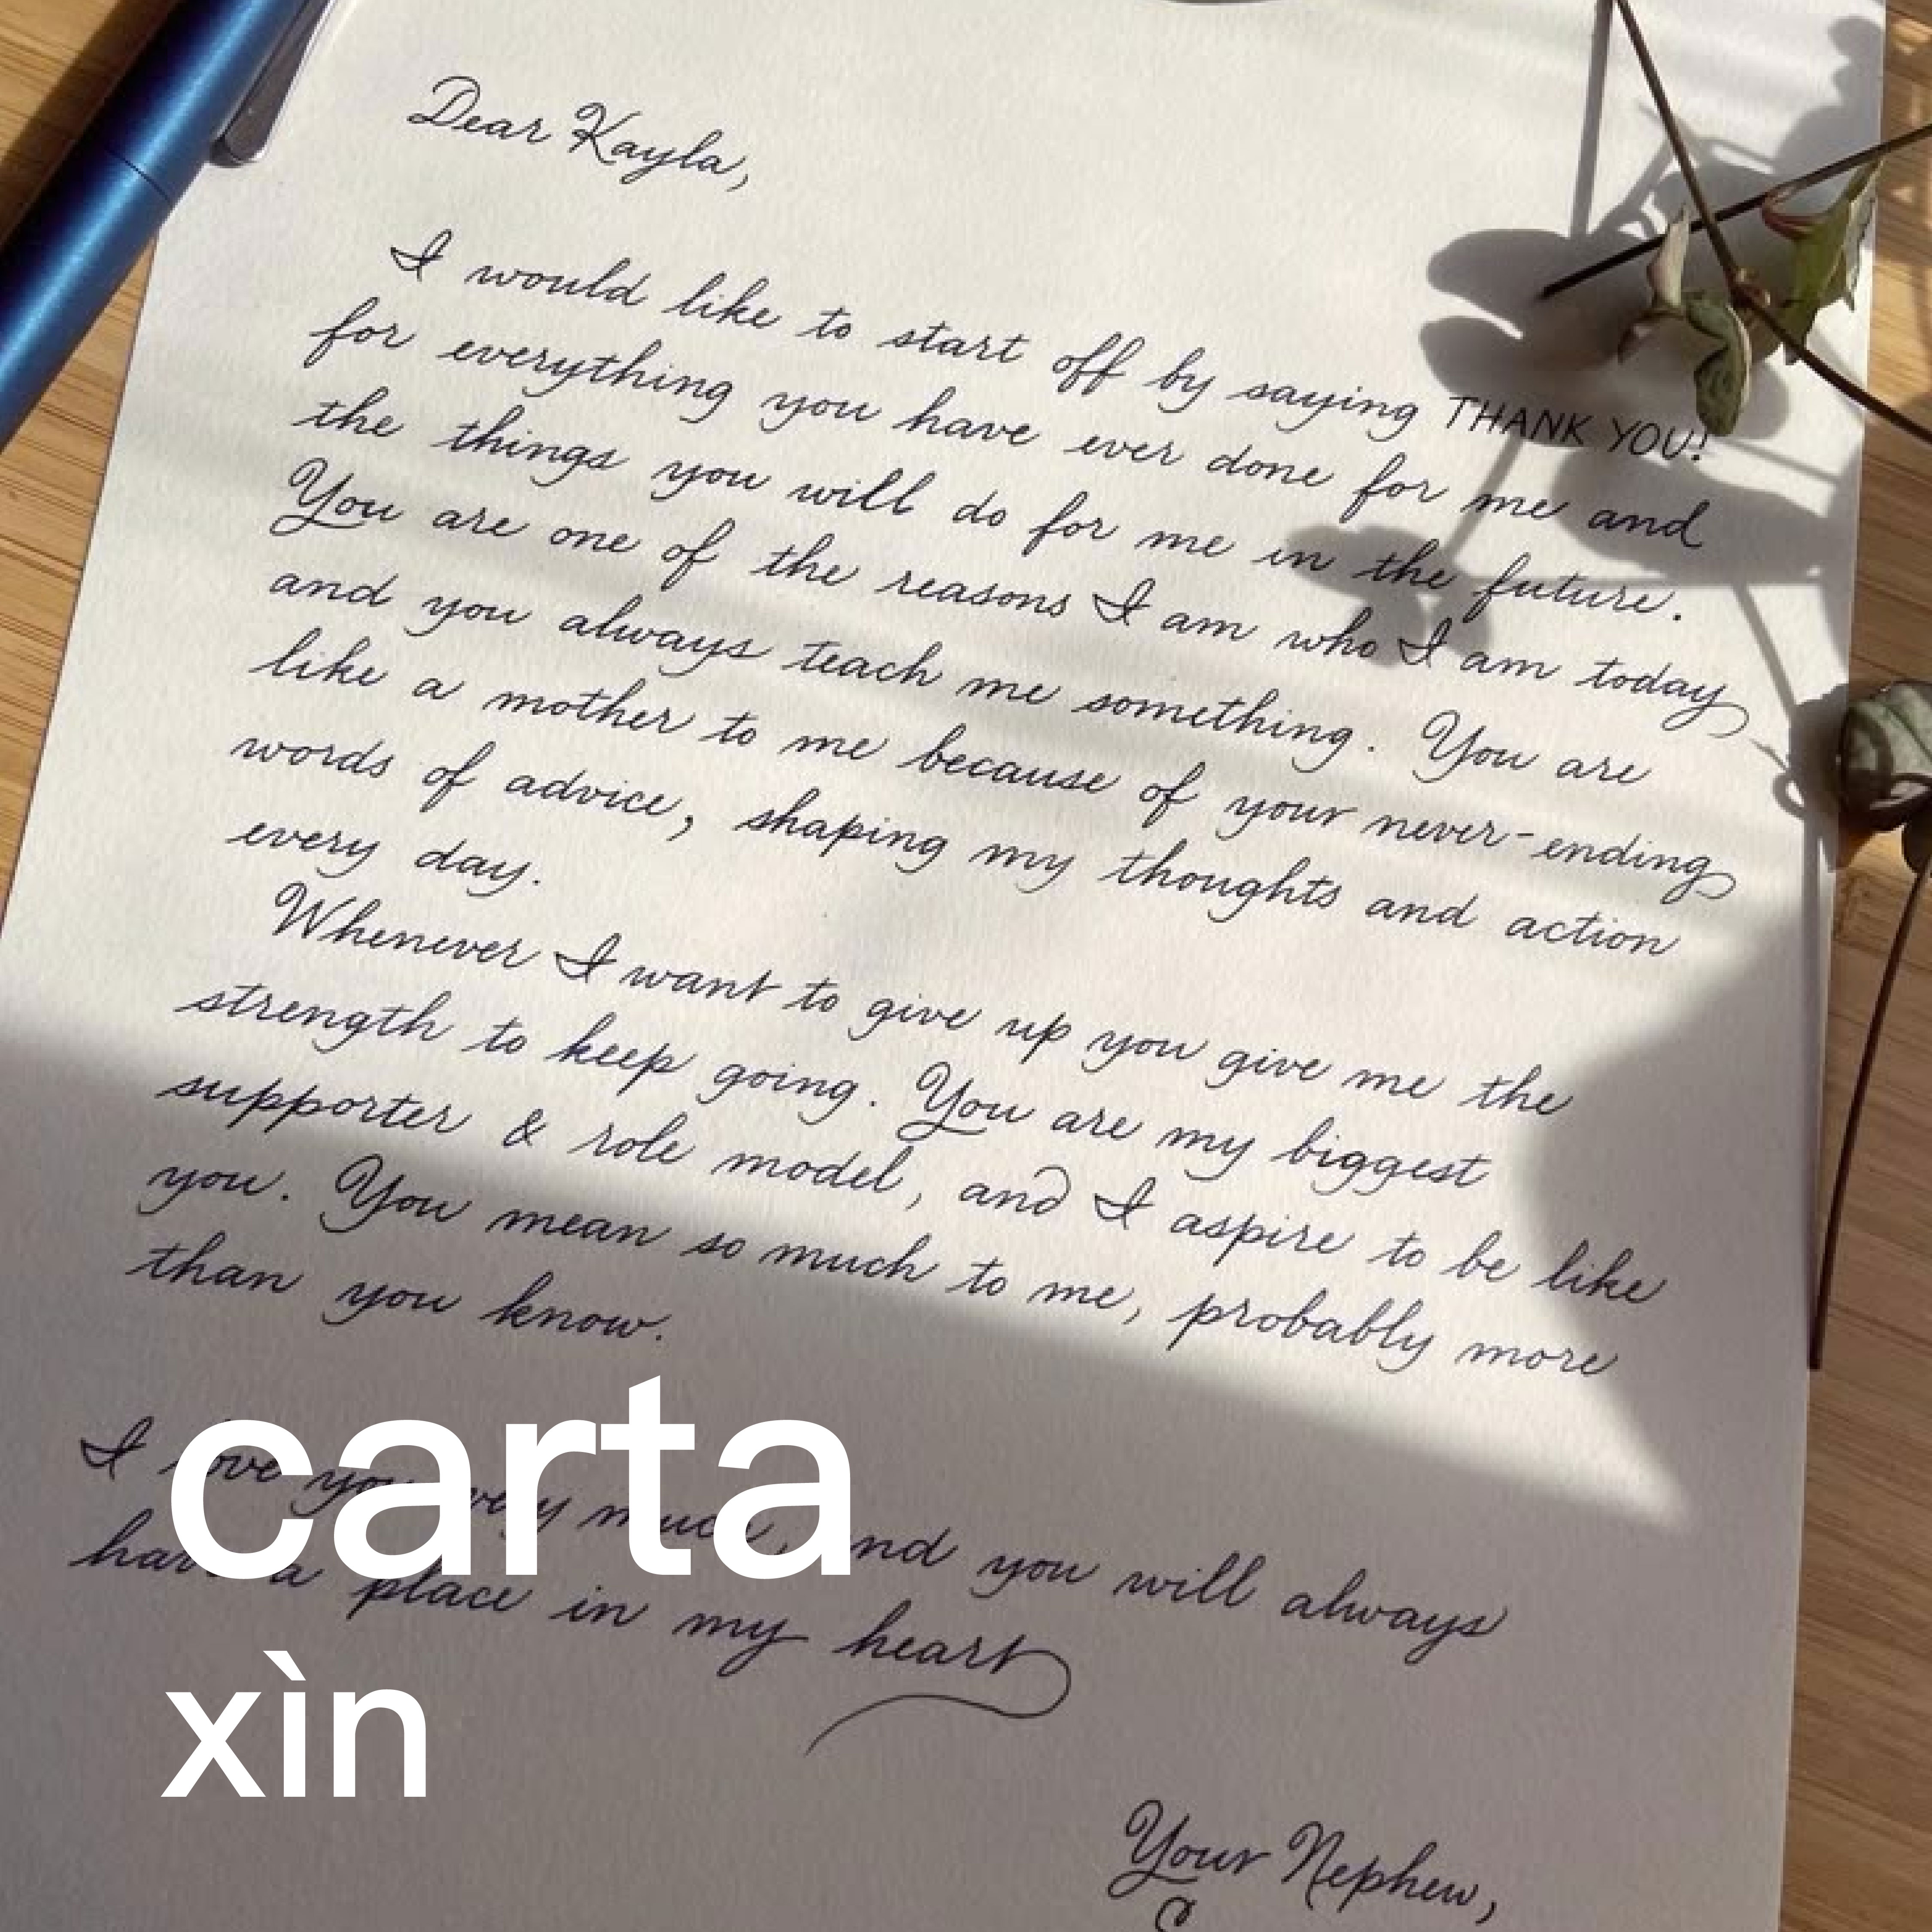 Dear Kayla,
I would like to start off by saying THANK YOU!
for everything you have ever done for me and
the things you will do for me in the future.
You are one of the reasons I am who I am today
and you always teach me something. You are
like a mother to me because of your never-ending
words of advice, shaping my thoughts and action
every day.
Whenever I want to give up you give me the
strength to keep going. You are my biggest
supporter & role model, and I aspire to be like
you. You mean so much to me, probably more
than you know.
I love you very much, and you will always
have a place in my heart
carta
xìn
Your Nephew,